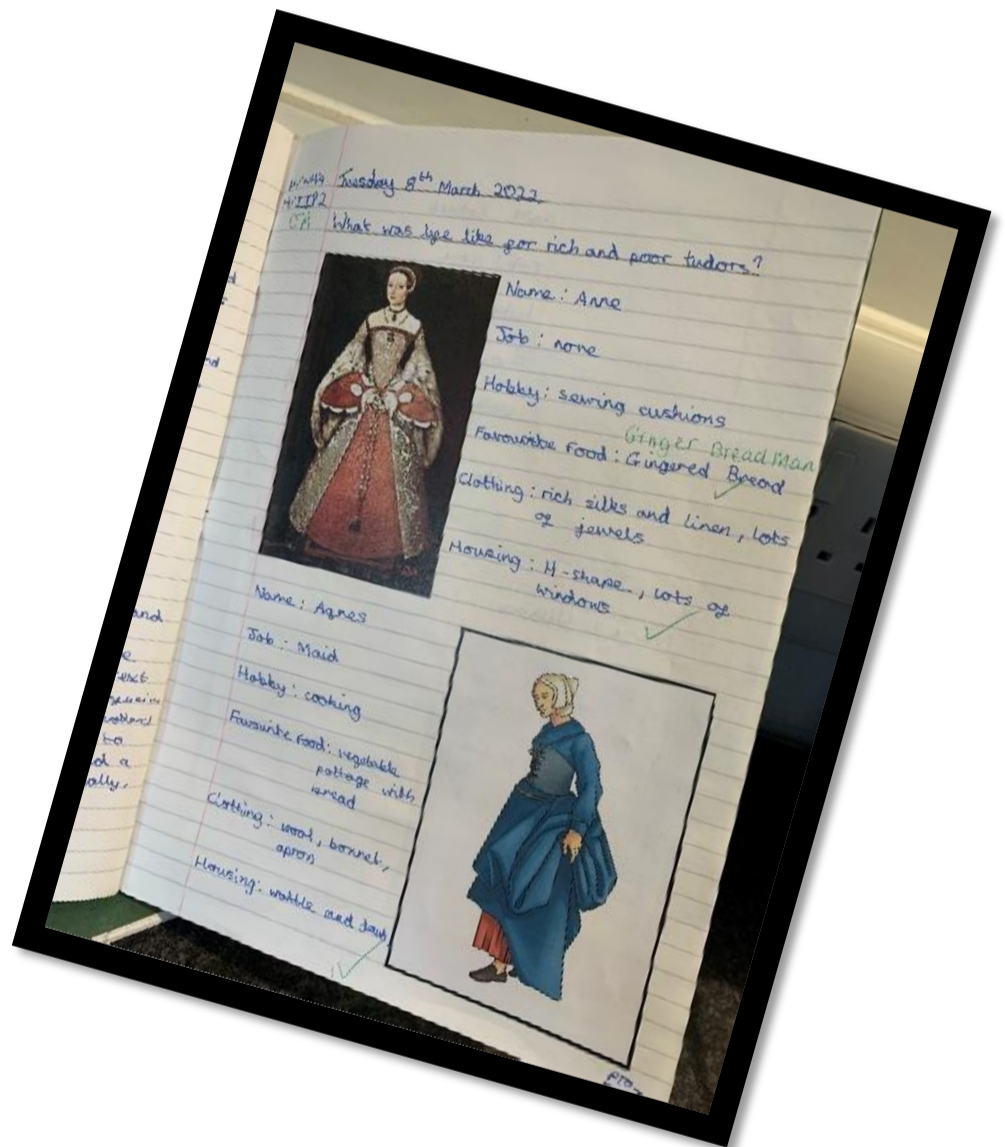 Tuesday 8th March 2022
What was life like for rich and poor tudors?
Name : Anne
Job : none
Hobby : sewing cushions
Ginger Bread Man
Favourite Food : Gingered Bread
Clothing : rich silks and linen, lots
of jewels
Housing : H-shape, lots of
windows
Name : Agnes
Job : Maid
Hobby : cooking
Favourite Food : vegetable
pottage with
bread
Clothing : wool, bonnet,
apron
Housing : wattle and daub
PTO
and
to
d a
ally.